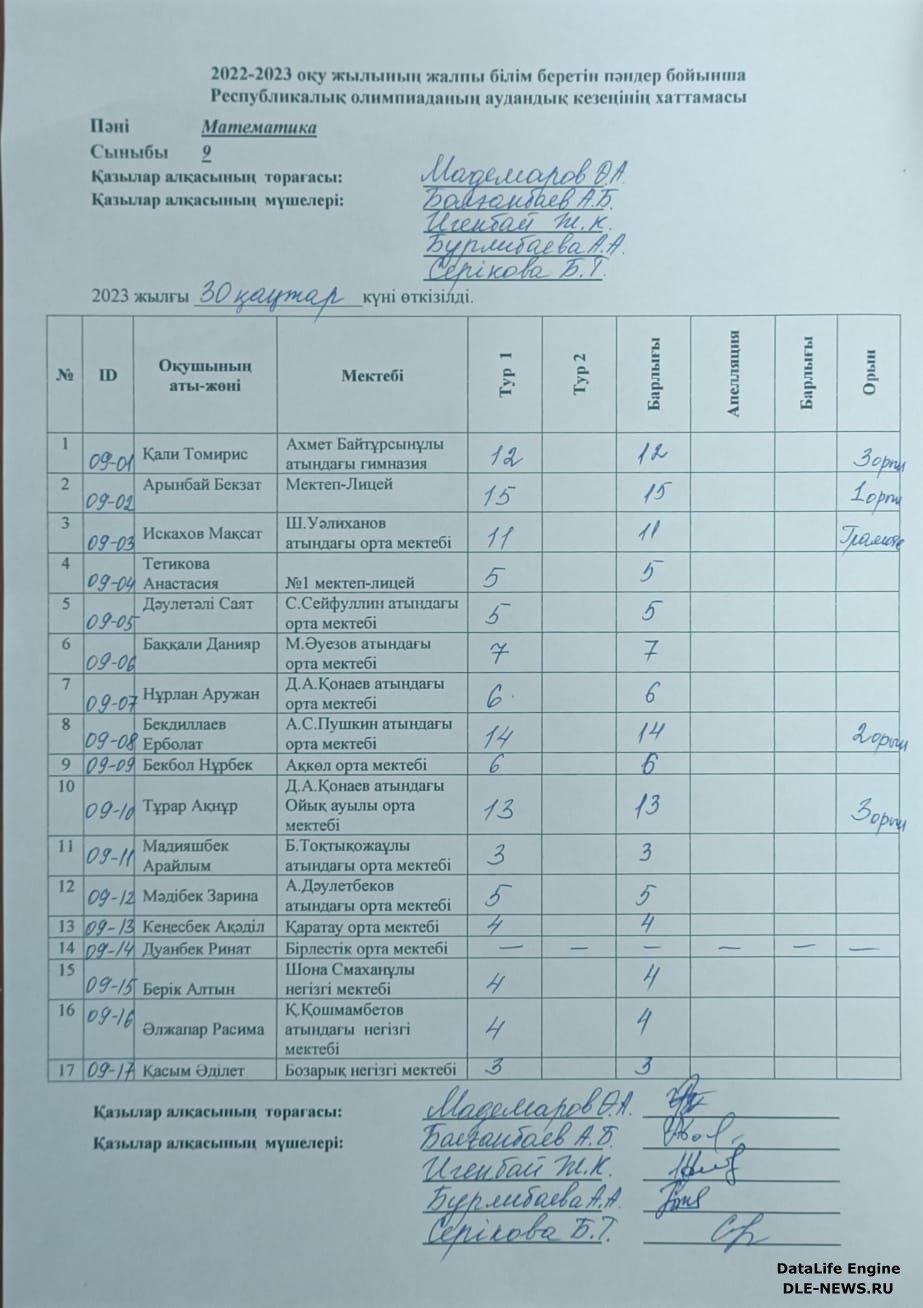 2022-2023 оқу жылының жалпы білім беретін пәндер бойынша
Республикалық олимпиаданың аудандық кезеңінің хаттамасы
Пәні Математика
Сыныбы 9
Қазылар алқасының төрағасы: Мадемаров Ә.А.
Қазылар алқасының мүшелері: Балғанбаев А.Б.
Игенбай Ж.К.
Бурлибаева А.А.
Серікова Б.Т.
2023 жылғы 30 қаңтар күні өткізілді.
№ ID Оқушының аты-жөні Мектебі Тур 1 Тур 2 Барлығы Апелляция Барлығы Орын
1 09-01 Қали Томирис Ахмет Байтұрсынұлы атындағы гимназия 12 12 3 орын
2 09-02 Арынбай Бекзат Мектеп-Лицей 15 15 1 орын
3 09-03 Искахов Мақсат Ш.Уәлиханов атындағы орта мектебі 11 11 Грамота
4 09-04 Тетикова Анастасия №1 мектеп-лицей 5 5
5 09-05 Дәулетәлі Саят С.Сейфуллин атындағы орта мектебі 5 5
6 09-06 Баққали Данияр М.Әуезов атындағы орта мектебі 7 7
7 09-07 Нұрлан Аружан Д.А.Қонаев атындағы орта мектебі 6 6
8 09-08 Бекдиллаев Ерболат А.С.Пушкин атындағы орта мектебі 14 14 2 орын
9 09-09 Бекбол Нұрбек Ақкөл орта мектебі 6 6
10 09-10 Тұрар Ақнұр Д.А.Қонаев атындағы Ойық ауылы орта мектебі 13 13 3 орын
11 09-11 Мадияшбек Арайлым Б.Тоқтықожаұлы атындағы орта мектебі 3 3
12 09-12 Мәдібек Зарина А.Дәулетбеков атындағы орта мектебі 5 5
13 09-13 Кеңесбек Ақәділ Қаратау орта мектебі 4 4
14 09-14 Дуанбек Ринат Бірлестік орта мектебі — — — — — —
15 09-15 Берік Алтын Шона Смаханұлы негізгі мектебі 4 4
16 09-16 Әлжапар Расима Қ.Қошмамбетов атындағы негізгі мектебі 4 4
17 09-17 Қасым Әділет Бозарық негізгі мектебі 3 3
Қазылар алқасының төрағасы: Мадемаров Ә.А.
Қазылар алқасының мүшелері: Балғанбаев А.Б.
Игенбай Ж.К.
Бурлибаева А.А.
Серікова Б.Т.
DataLife Engine
DLE-NEWS.RU